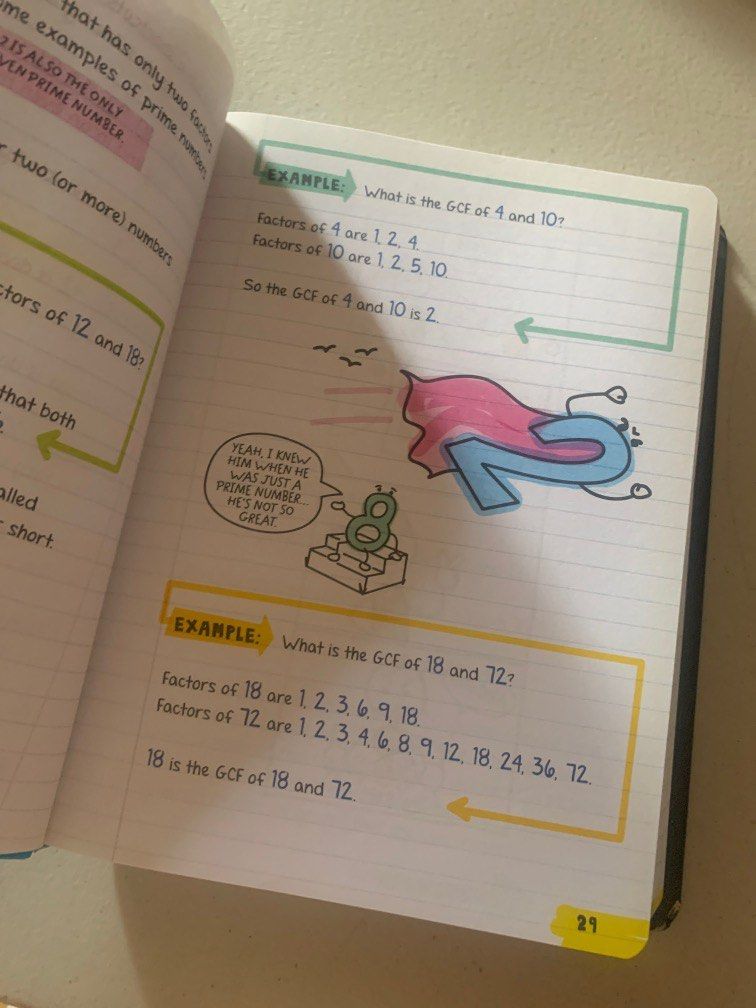 that has only two factors
me examples of prime numbers
2 IS ALSO THE ONLY
VEN PRIME NUMBER.
r two (or more) numbers
ctors of 12 and 18?
that both
alled
r short.
EXAMPLE: What is the GCF of 4 and 10?
Factors of 4 are 1, 2, 4.
Factors of 10 are 1, 2, 5, 10.
So the GCF of 4 and 10 is 2.
2
YEAH, I KNEW
HIM WHEN HE
WAS JUST A
PRIME NUMBER...
HE'S NOT SO
GREAT.
8
EXAMPLE: What is the GCF of 18 and 72?
Factors of 18 are 1, 2, 3, 6, 9, 18.
Factors of 72 are 1, 2, 3, 4, 6, 8, 9, 12, 18, 24, 36, 72.
18 is the GCF of 18 and 72.
29